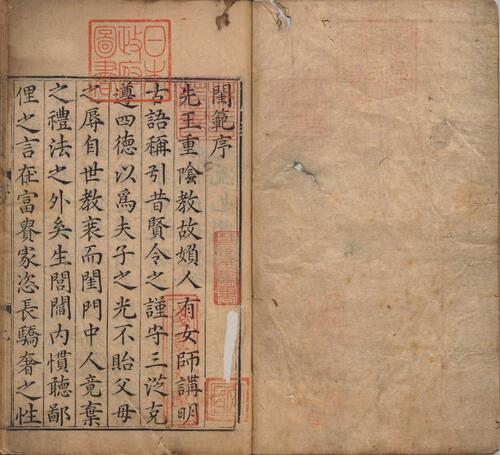 日本
政府
圖書
閨範序
先王重陰教故媍人有女師講明
古語稱引昔賢令之謹守三從克
遵四德以爲夫子之光不貽父母
之辱自世教衰而閨門中人竟棄
之禮法之外矣生閭閻內慣聽鄙
俚之言在富貴家恣長驕奢之性